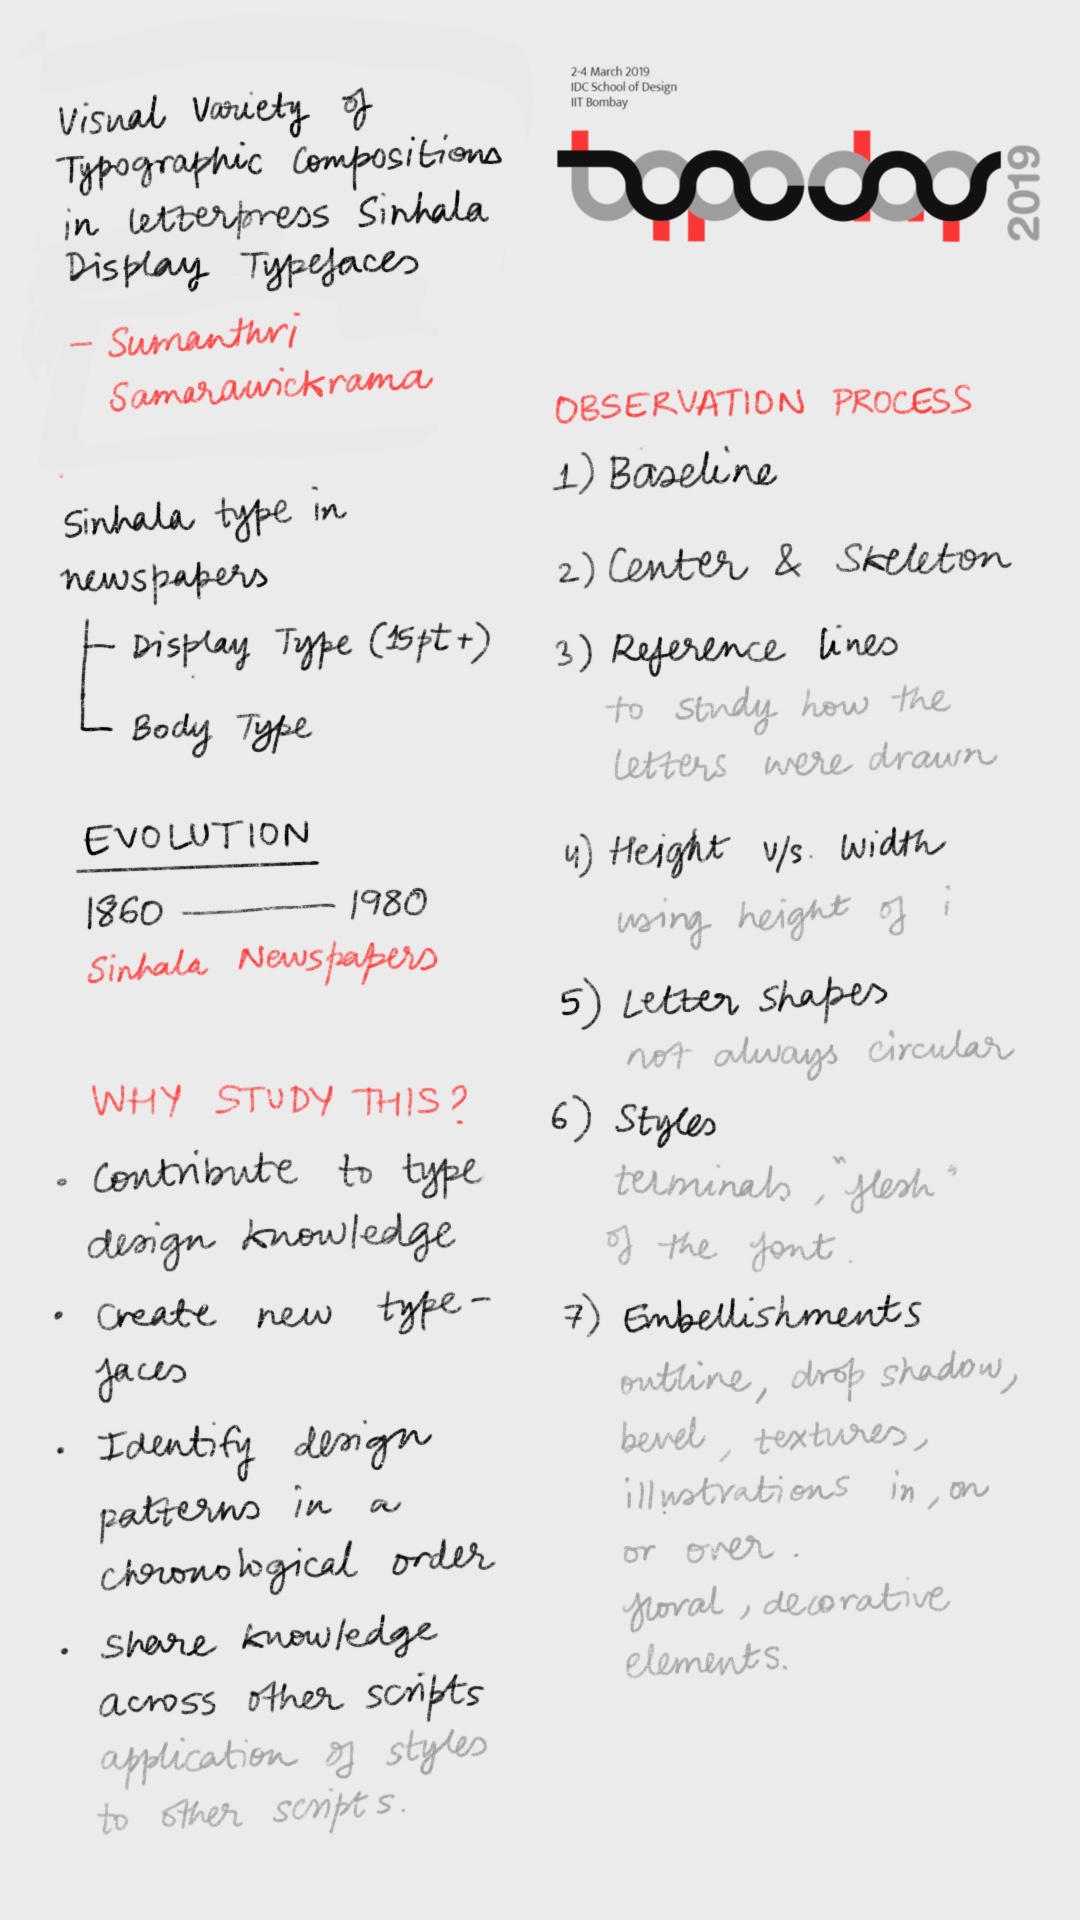 Visual Variety of
Typographic Compositions
in letterpress Sinhala
Display Typefaces
- Sumanthri
Samarawickrama
Sinhala type in
newspapers
Display Type (15pt+)
Body Type
EVOLUTION
1860 — 1980
Sinhala Newspapers
WHY STUDY THIS?
• Contribute to type
design knowledge
• Create new type-
faces
• Identify design
patterns in a
chronological order
• Share knowledge
across other scripts
application of styles
to other scripts.
2-4 March 2019
IDC School of Design
IIT Bombay
typoday
2019
OBSERVATION PROCESS
1) Baseline
2) Center & Skeleton
3) Reference lines
to study how the
letters were drawn
4) Height v/s. Width
using height of i
5) Letter shapes
not always circular
6) Styles
terminals, "flesh"
of the font.
7) Embellishments
outline, drop shadow,
bevel, textures,
illustrations in, on
or over.
floral, decorative
elements.